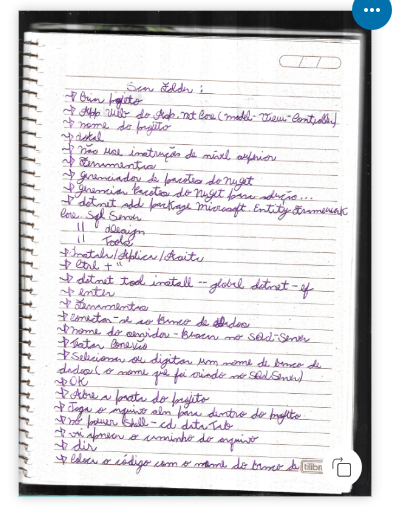 Sem Folder :
→ Criar projeto
→ App Web do Asp.net Core (model-View-Controller)
→ nome do projeto
→ local
→ não use instruções de nível superior
→ Ferramentas
→ gerenciador de pacotes do Nuget
→ gerenciar Pacotes do Nuget para solução...
→ dotnet add package Microsoft.EntityFramework
Core. Sql Server
" Design
" Tools
→ Instalar/Aplicar/Aceito
→ Ctrl + "
→ dotnet tool install --global dotnet-ef
→ enter
→ Ferramentas
→ conectar-se ao Banco de dados
→ nome do servidor - Buscar no SQL-Server
→ Testar Conexão
→ Selecionar ou digitar um nome de banco de
dados (o nome que foi criado no SQL Server)
→ OK
→ Abre a pasta do projeto
→ Joga o arquivo sln para dentro do projeto
→ no power Shell - cd data Tab
→ vai aparecer o caminho do arquivo
→ dir
→ o código com o nome do banco de
tilibra